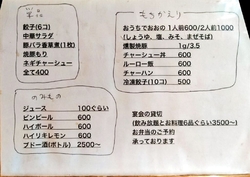 単品
餃子(6コ)
中華サラダ
豚バラ香草煮(1枚)
焼豚もり
ネギチャーシュー
全て400
のみもの
ジュース 100ぐらい
ビンビール 600
ハイボール 600
ハイリキレモン 600
ブドー酒(ボトル) 2500〜
もちかえり
おうちでおおの 1人前600/2人前1000
(しょうゆ、塩、みそ、まぜそば)
燻製焼豚 1g/3.5
チャーシュー丼 600
ルーロー飯 600
チャーハン 600
冷凍餃子(10コ) 500
宴会の貸切
(飲み放題とお料理6品ぐらい3500〜)
お弁当のご予約
承っております